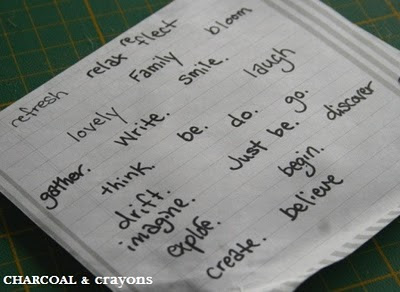 refresh relax reflect bloom
lovely Family smile. laugh
Write.
gather. think. be. do. go.
drift. Just be. discover
imagine. begin.
create. believe
CHARCOAL & crayons